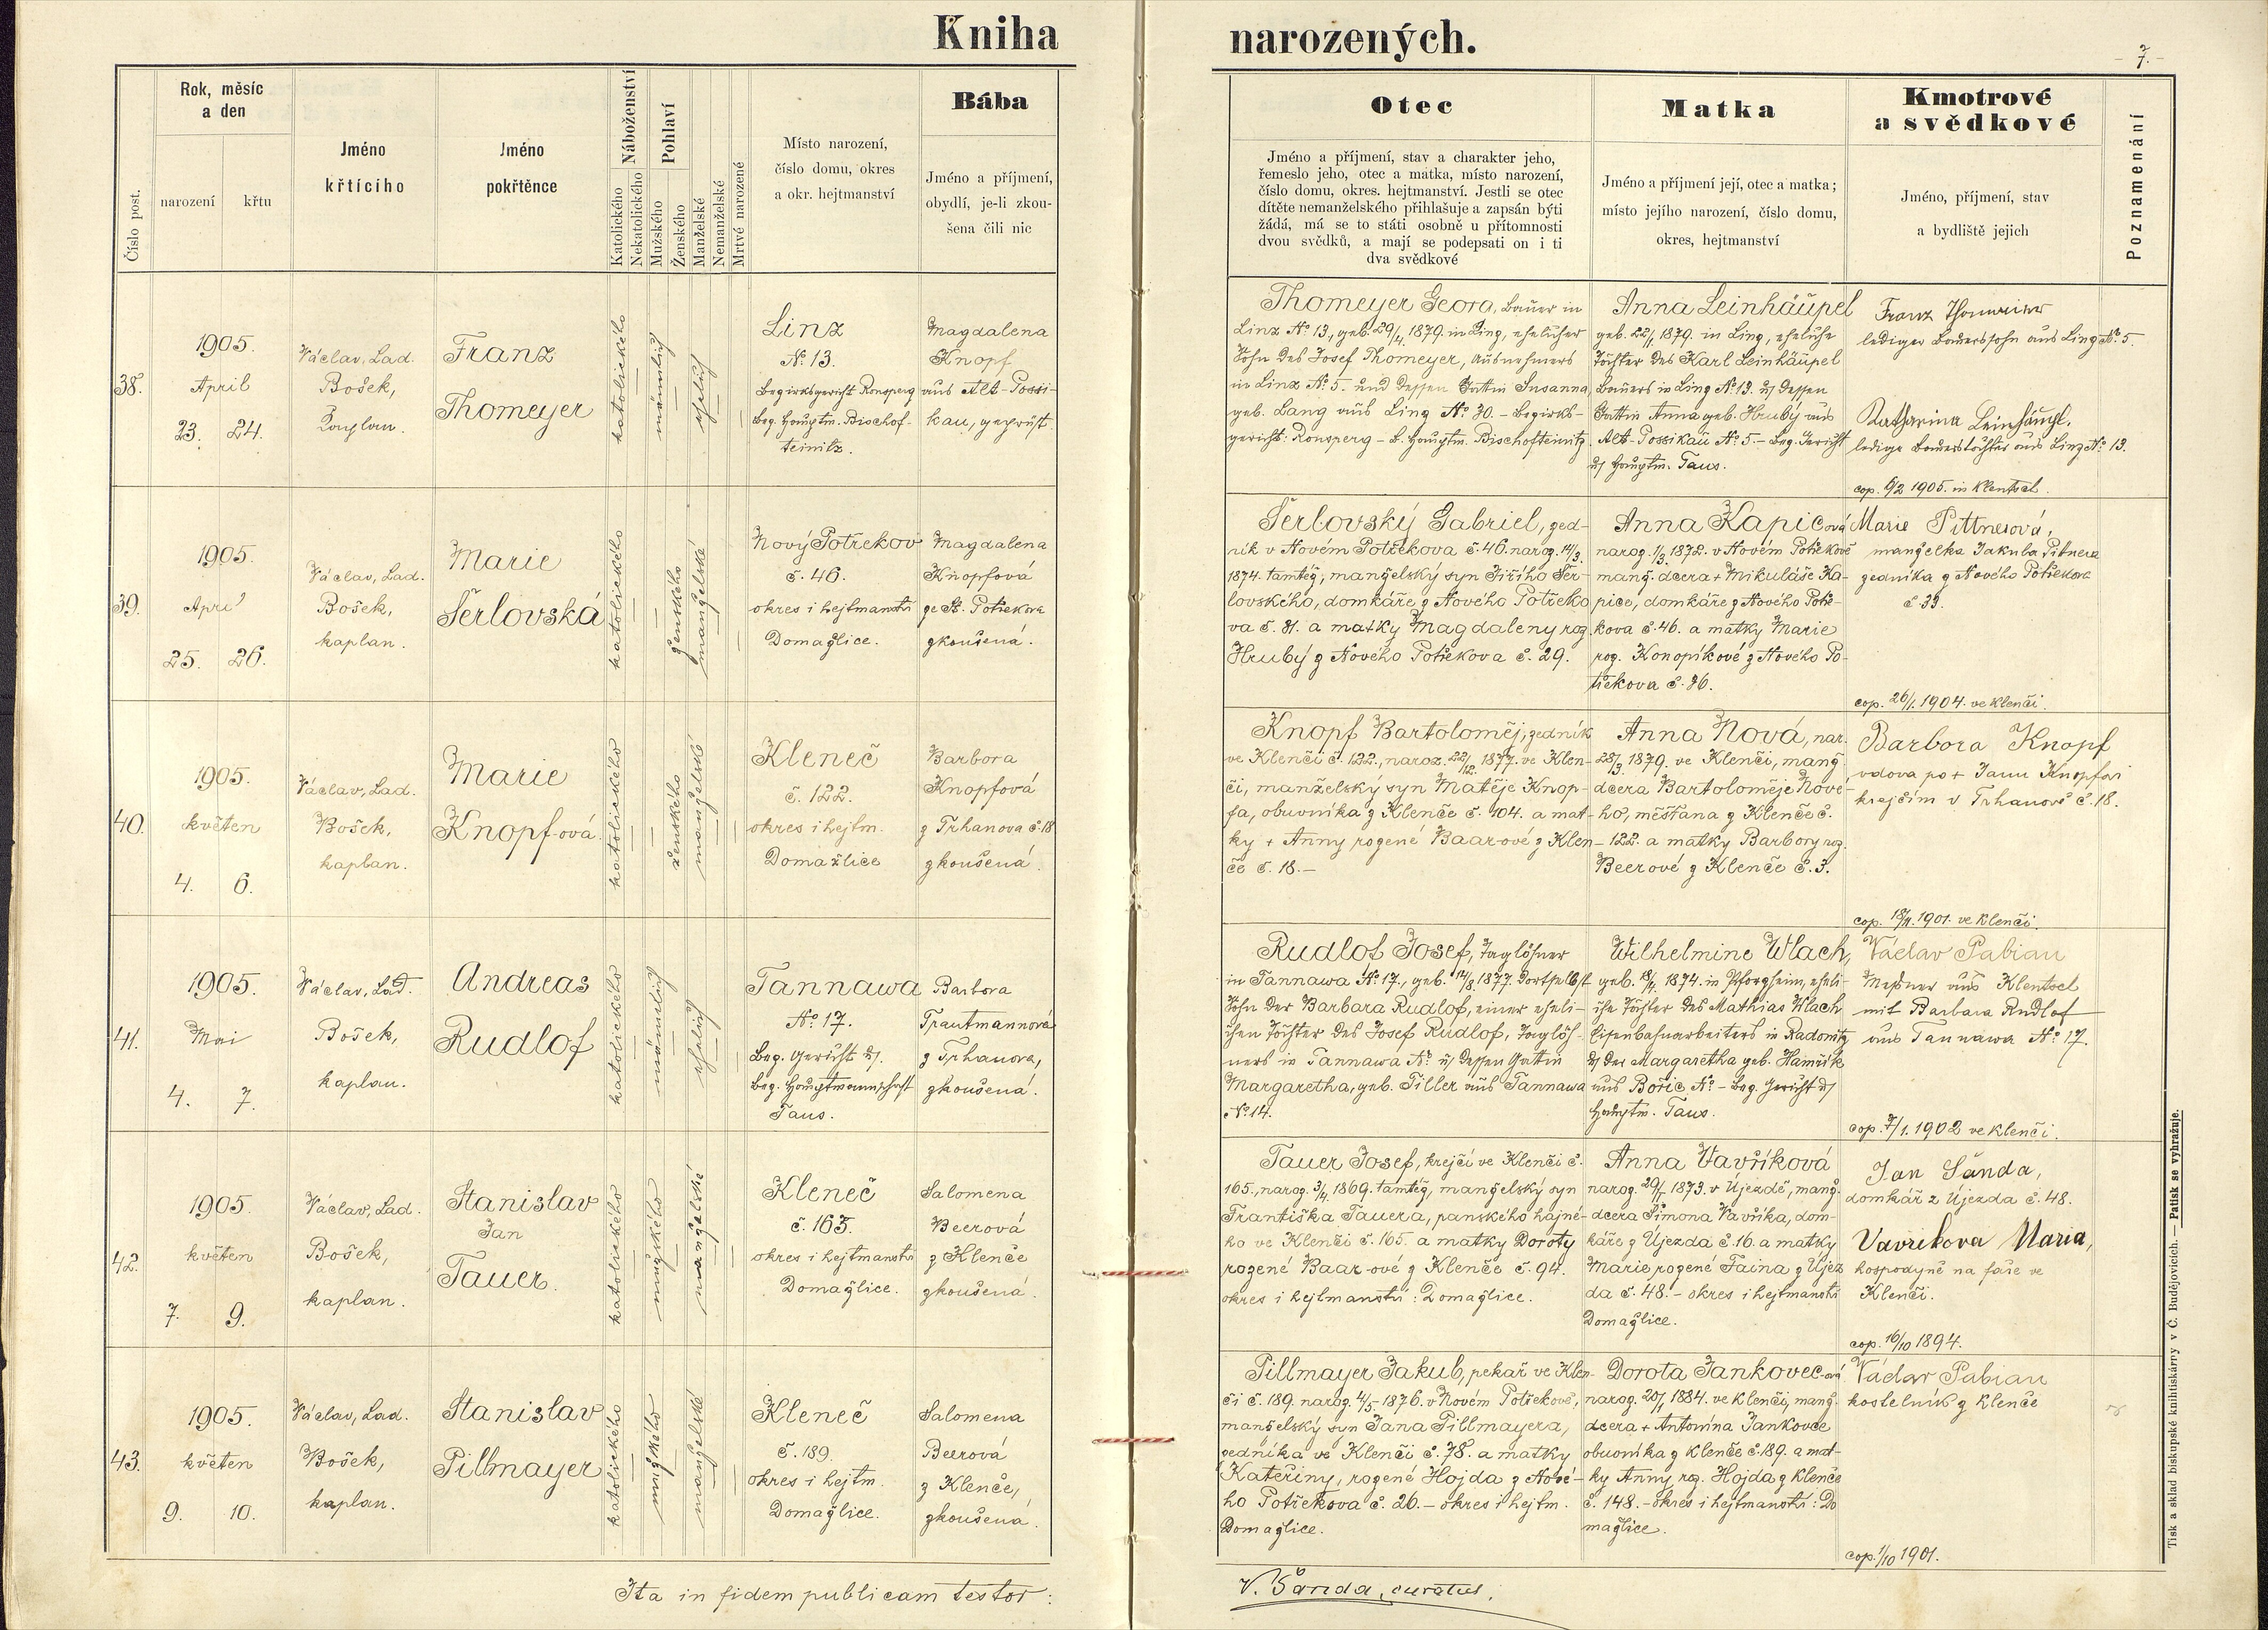 Kniha
narozených.
7.
Rok, měsíc
a den
Číslo post.
narození
křtu
Jméno
křtícího
Jméno
pokřtěnce
Náboženství
Katolického
Nekatolického
Pohlaví
Mužského
Ženského
Manželské
Nemanželské
Mrtvé narozené
Místo narození,
číslo domu, okres
a okr. hejtmanství
Bába
Jméno a příjmení,
obydlí, je-li zkou-
šena čili nic
Otec
Jméno a příjmení, stav a charakter jeho,
řemeslo jeho, otec a matka, místo narození,
číslo domu, okres. hejtmanství. Jestli se otec
dítěte nemanželského přihlašuje a zapsán býti
žádá, má se to státi osobně u přítomnosti
dvou svědků, a mají se podepsati on i ti
dva svědkové
Matka
Jméno a příjmení její, otec a matka;
místo jejího narození, číslo domu,
okres, hejtmanství
Kmotrové
a svědkové
Jméno, příjmení, stav
a bydliště jejich
Poznamenání
38.
1905.
April
23. 24.
Václav, Lad.
Bošek,
Kaplan.
Franz
Thomeyer
katolického
männlich
ehelich
Linz
No. 13.
Bezirksgericht Ronsperg
Bez. Hauptm. Bischof-
teinitz.
Magdalena
Knopf
aus Alt-Possi-
kau, geprüft.
Thomeyer Georg, Bauer in
Linz No. 13, geb. 29/4. 1879. in Linz, ehelicher
Sohn des Josef Thomeyer, Ausnehmers
in Linz No. 5. und dessen Gattin Susanna,
geb. Lang aus Linz No. 30. - Bezirks-
gericht: Ronsperg - B. Hauptm. Bischofteinitz.
Anna Leinhäupel
geb. 22/1. 1879. in Linz, eheliche
Tochter des Karl Leinhäupel
Bauers in Linz No. 13. u. dessen
Gattin Anna geb. Hrubý aus
Alt-Possikau No. 5. - Bez. Gericht
u. Hauptm. Taus.
Franz Thomeier
lediger Bauerssohn aus Linz No. 5.
Katharina Leinhäupl.
ledige Bauerstochter aus Linz No. 13.
cop. 6/2 1905. in Klentsch.
39.
1905.
April
25. 26.
Václav, Lad.
Bošek,
kaplan.
Marie
Šerlovská
katolického
ženského
manželské
Nový Potřekov
č. 46.
okres i hejtmanství
Domažlice.
Magdalena
Knopfová
ze St. Potřekova
zkoušená.
Šerlovský Gabriel, zed-
ník v Novém Potřekova č. 46. naroz. 14/3.
1874. tamtéž, manželský syn Jiřího Šer-
lovského, domkáře z Nového Potřeko
va č. 31. a matky Magdaleny roz.
Hrubý z Nového Potřekova č. 29.
Anna Kapicová
naroz. 1/3. 1872. v Novém Potřekově
manž. dcera + Mikuláše Ka-
pice, domkáře z Nového Potře-
kova č. 46. a matky Marie
roz. Konopíkové z Nového Po-
třekova č. 36.
Marie Pittnerová,
manželka Jakuba Pitnera
zedníka z Nového Potřekova
č. 39.
cop. 26/1. 1904. ve Klenčí.
40.
1905.
květen
4. 6.
Václav, Lad.
Bošek,
kaplan.
Marie
Knopf-ová
katolického
ženského
manželské
Kleneč
č. 122.
okres i hejtm.
Domažlice
Barbora
Knopfová
z Trhanova č. 18
zkoušená.
Knopf Bartoloměj, zedník
ve Klenčí č. 122., naroz. 22/12. 1877. ve Klen-
čí, manželský syn Matěje Knop-
fa, obuvníka z Klenče č. 104. a mat-
ky + Anny rozené Baarové z Klen-
če č. 18. -
Anna Nová, nar.
28/3. 1879. ve Klenčí, manž.
dcera Bartoloměje Nové-
ho, měšťana z Klenče č.
122. a matky Barbory roz.
Beerové z Klenče č. 3.
Barbora Knopf
vdova po + Janu Knopfovi
krejčím v Trhanově č. 18.
cop. 18/11. 1901. ve Klenčí.
41.
1905.
Mai
4. 7.
Václav, Lad.
Bošek,
kaplan.
Andreas
Rudlof
katolického
männlich
ehelich
Tannawa
No. 17.
Bez. Gericht u.
Bez. Hauptmannschaft
Taus.
Barbora
Trautmannová
z Trhanova,
zkoušená.
Rudlof Josef, Taglöhner
in Tannawa No. 17., geb. 14/8. 1877. dortselbst
Sohn der Barbara Rudlof, einer eheli-
chen Tochter des Josef Rudlof, Taglöh-
ners in Tannawa No. u. dessen Gattin
Margaretha, geb. Tiller aus Tannawa
No. 14.
Wilhelmine Wlach,
geb. 18/4. 1874. in Pforzheim, eheli-
che Tochter des Mathias Wlach
Eisenbahnarbeiters in Radonitz
u. der Margaretha geb. Hamřík
aus Bořic No. - Bez. Gericht u.
Hauptm. Taus.
Václav Pabian
Meßner aus Klentsch
mit Barbara Rudlof
aus Tannawa No. 17.
cop. 7/1. 1902 ve Klenčí.
42.
1905.
květen
7. 9.
Václav, Lad.
Bošek,
kaplan.
Stanislav
Jan
Tauer.
katolického
mužského
manželské
Kleneč
č. 165.
okres i hejtmanství
Domažlice.
Salomena
Beerová
z Klenče
zkoušená.
Tauer Josef, krejčí ve Klenčí č.
165., naroz. 3/4. 1869. tamtéž, manželský syn
Františka Tauera, panského hajné-
ho ve Klenčí č. 165. a matky Doroty
rozené Baar-ové z Klenče č. 94.
okres i hejtmanství: Domažlice.
Anna Vavříková
naroz. 29/5. 1873. v Újezdě, manž.
dcera Šimona Vavříka, dom-
káře z Újezda č. 16. a matky
Marie rozené Faina z Újez
da č. 48. - okres i hejtmanství
Domažlice.
Jan Šanda,
domkář z Újezda č. 48.
Vavřikova Maria,
hospodyně na faře ve
Klenčí.
cop. 16/10 1894.
43.
1905.
květen
9. 10.
Václav, Lad.
Bošek,
kaplan.
Stanislav
Pillmayer
katolického
mužského
manželské
Kleneč
č. 189.
okres i hejtm.
Domažlice.
Salomena
Beerová
z Klenče,
zkoušená.
Pillmayer Jakub, pekař ve Klen-
čí č. 189. naroz. 4/5. 1876. v Novém Potřekově,
manželský syn Jana Pillmayera,
zedníka ve Klenčí č. 78. a matky
Kateřiny, rozené Hojda z Nové-
ho Potřekova č. 26. - okres i hejtm.
Domažlice.
Dorota Jankovec-ová
naroz. 20/1. 1884. ve Klenčí, manž.
dcera + Antonína Jankovce
obuvníka z Klenče č. 189. a mat-
ky Anny roz. Hojda z Klenče
č. 148. - okres i hejtmanství: Do
mažlice.
Václav Pabian
kostelník z Klenče
cop. 1/10 1901.
Ita in fidem publicam testor:
V. Šanda, curatus.
Tisk a sklad biskupské knihtiskárny v Č. Budějovicích. — Patisk se vyhražuje.